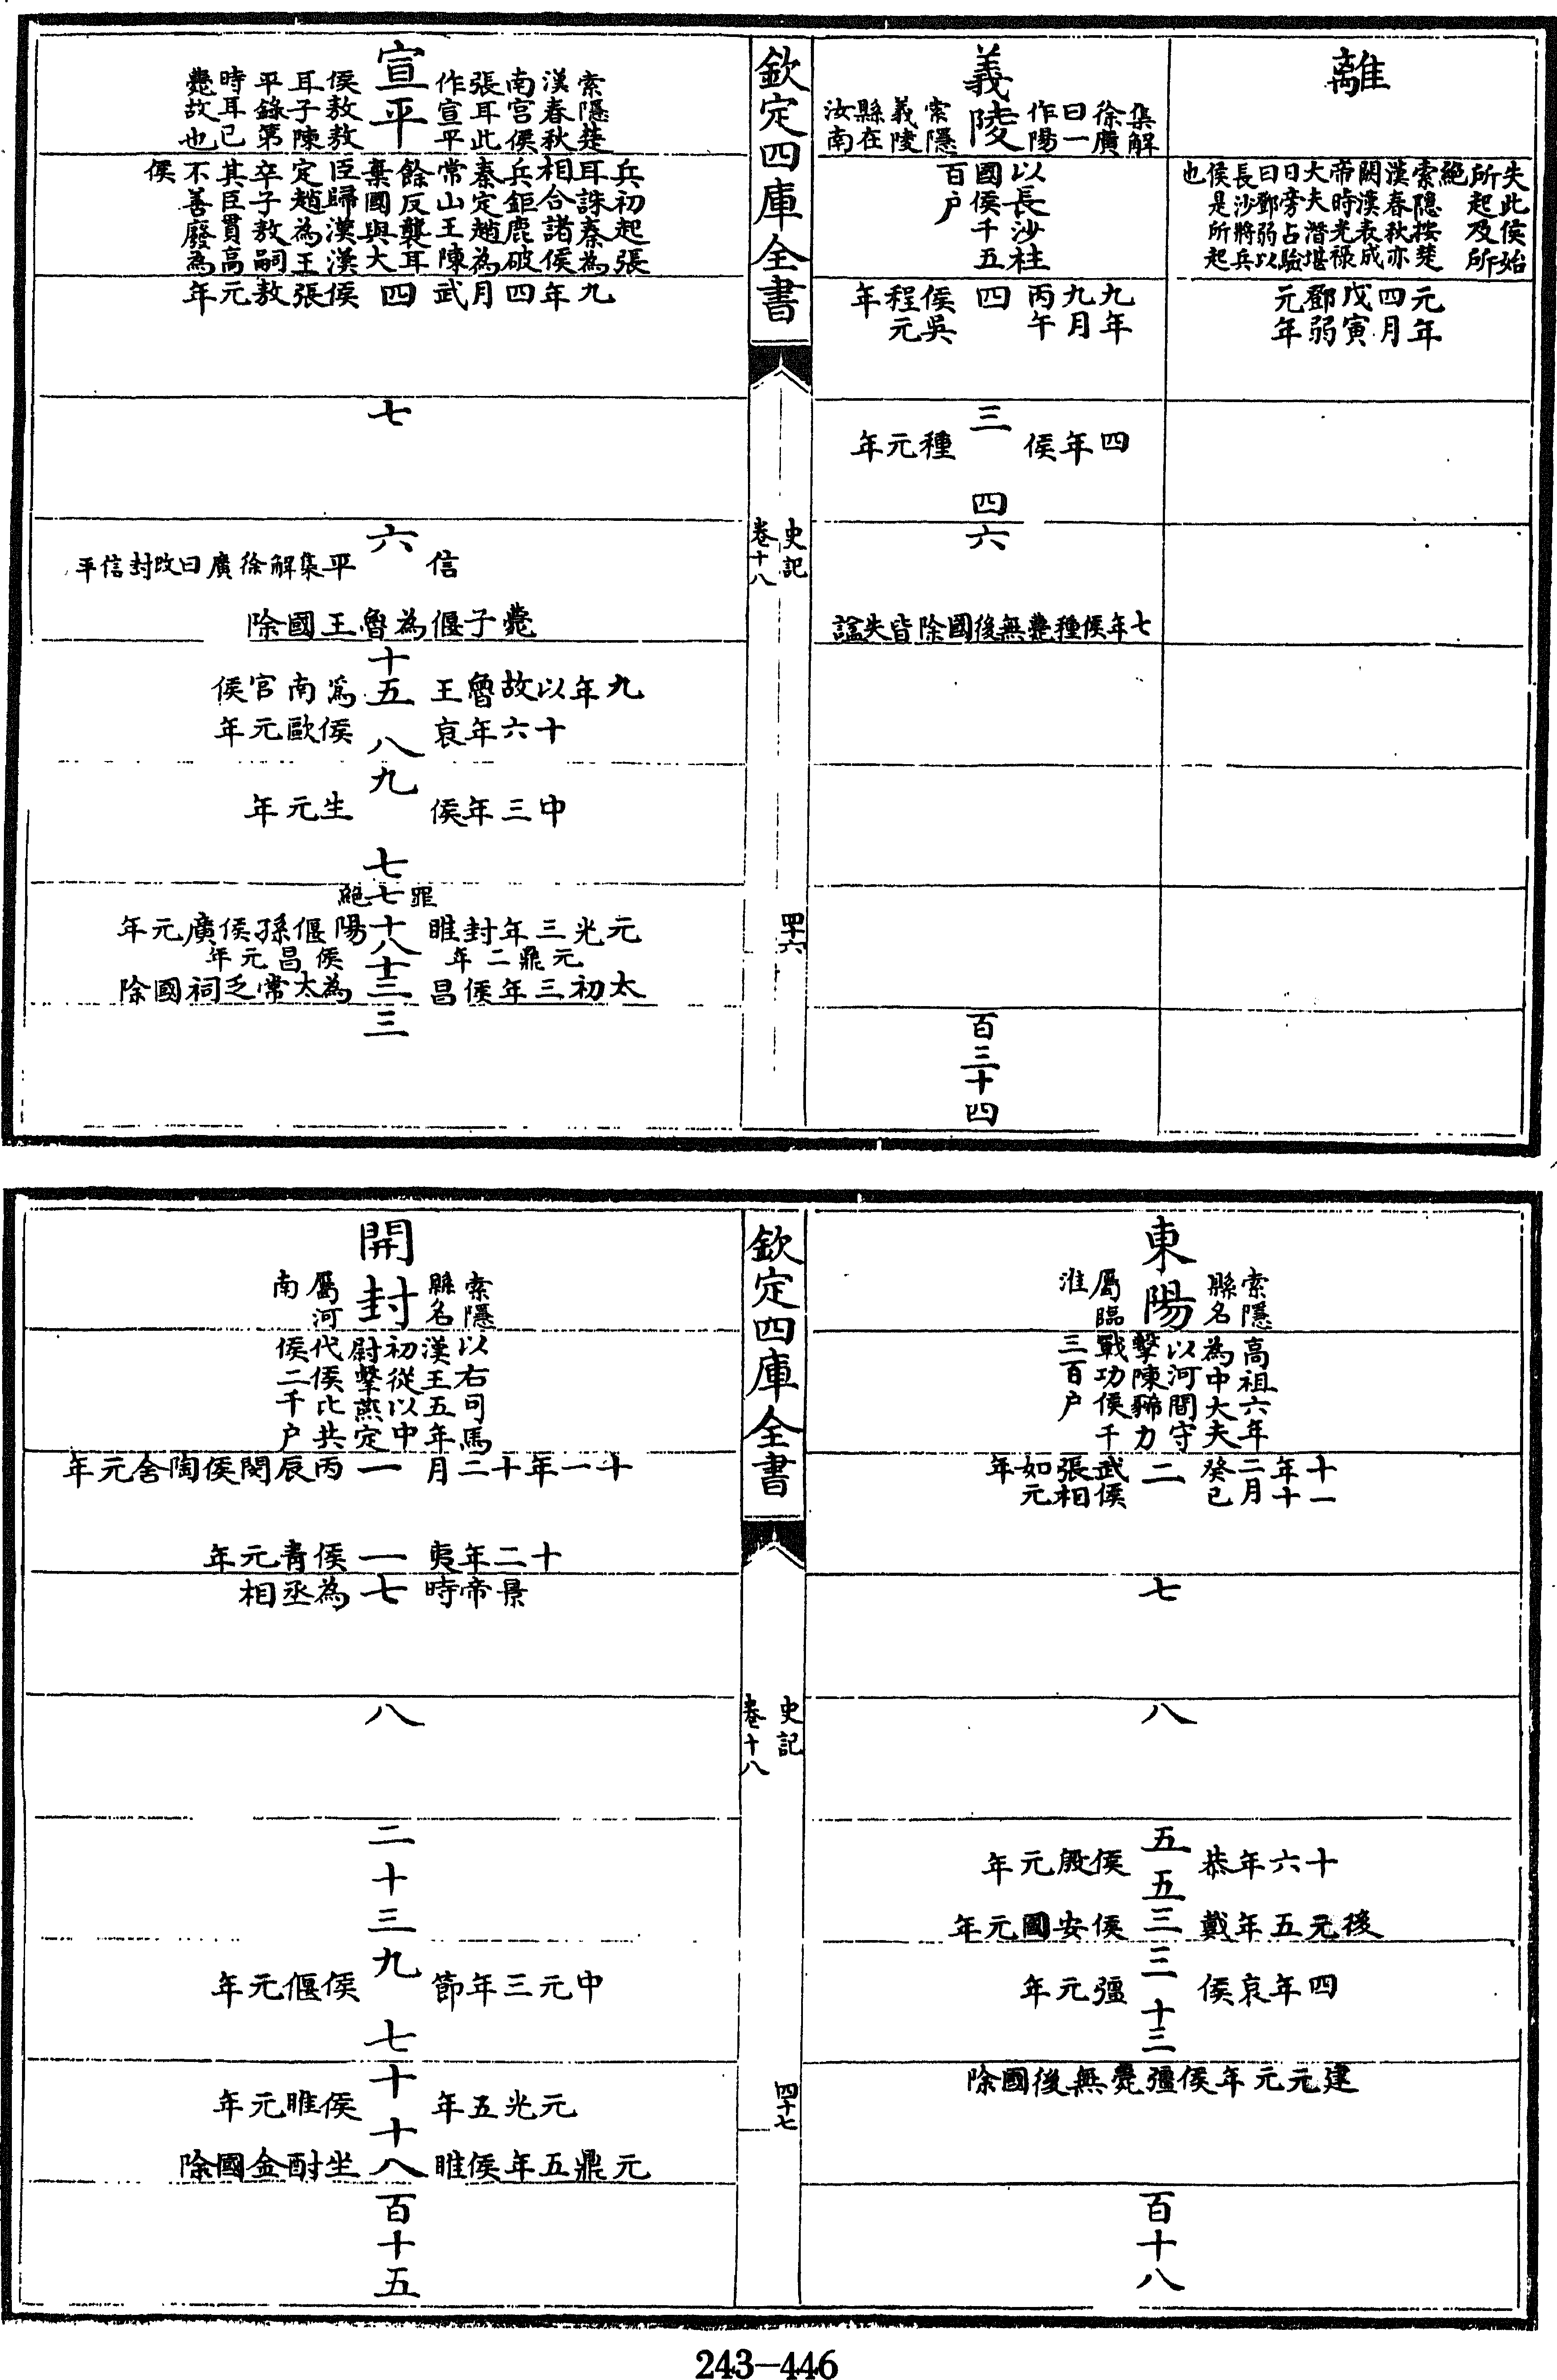 離
失此侯始
所起及所
絕
索隱按楚
漢春秋亦
闕漢表成
帝時光祿
大夫潛堪
日旁占驗
曰鄧弱以
長沙將兵
侯是所起
也
元年
四月
戊寅
鄧弱
元年
集解
徐廣
曰一
作陽
義陵
索隱
義陵
縣在
汝南
以長沙柱
國侯千五
百戶
九年
九月
丙午
四
侯吳
程元
年
三
四年侯種元年
四
六
七年侯種薨無後國除皆失諡
百三十四
欽定四庫全書
史記
卷十八
四十六
索隱楚
漢春秋
南宮侯
張耳此
作宣平
宣平
侯敖敖
耳子陳
平錄第
時耳已
薨故也
兵初起張
耳誅秦為
相合諸侯
兵鉅鹿破
秦定趙為
常山王陳
餘反襲耳
棄國與大
臣歸漢漢
定趙為王
卒子敖嗣
其臣貫高
不善廢為
侯
九年四月武四侯張敖元年
七
六
信平集解徐廣曰改封信平
薨子偃為魯王國除
十五
九年以故魯王為南宮侯
十六年哀侯歐元年
八
九
中三年侯生元年
七
七
罪絕
元光三年封睢陽偃孫侯廣元年
十八
元鼎二年侯昌元年
十三
太初三年侯昌為太常乏祠國除
三
索隱
縣名
東陽
屬臨
淮
高祖六年
為中大夫
以河間守
擊陳豨力
戰功侯千
三百戶
十一
年十
二月
癸巳
二
武侯
張相
如元
年
七
八
五
十六年恭侯殷元年
五
三
後元五年戴侯安國元年
三
四年哀侯彊元年
十三
建元元年侯彊薨無後國除
百十八
欽定四庫全書
史記
卷十八
四十七
索隱
縣名
開封
屬河
南
以右司馬
漢王五年
初從以中
尉擊燕定
代侯比共
侯二千戶
十一年十二月丙辰閔侯陶舍元年
一
十二年夷侯青元年
一
七
景帝時為丞相
八
二十三
九
中元三年節侯偃元年
七
十
元光五年侯睢元年
十八
元鼎五年侯睢坐酎金國除
百十五
243-446